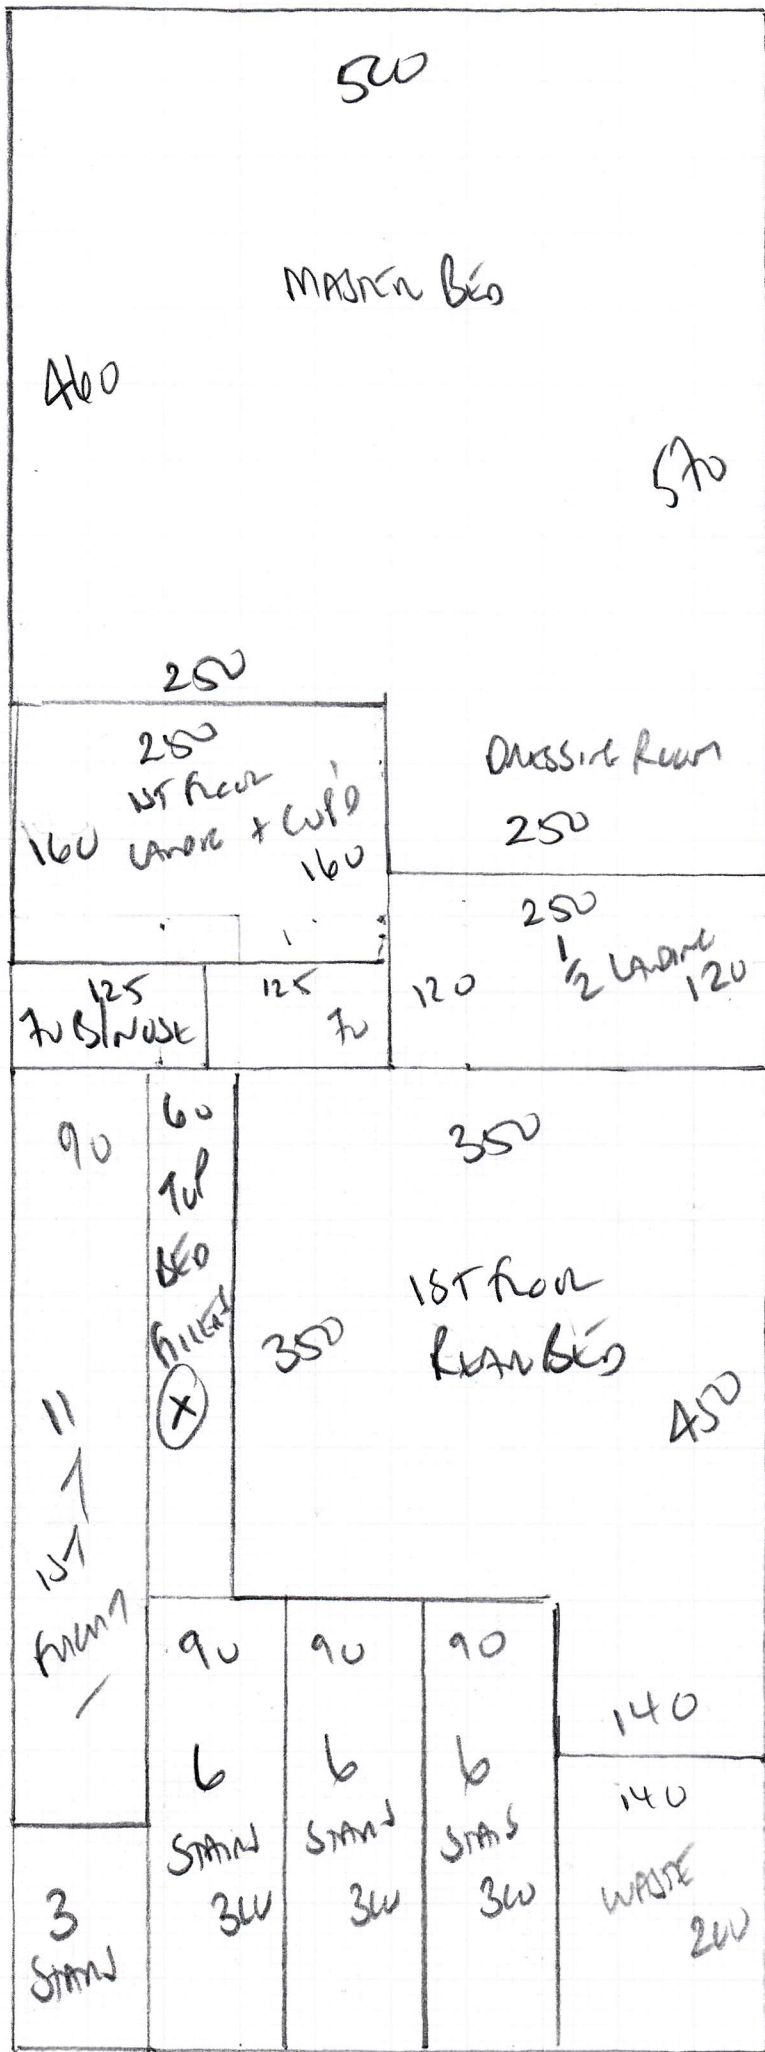 500
MASTER BED
460
570
250
250
1ST FLOOR
LANDING + CUP'D
160
160
DRESSING ROOM
250
250
1/2 LANDING
120
120
125
70 B/NOSE
125
70
90
11
1ST
FLIGHT
60
TOP
BED
FILLERS
X
350
350
1ST FLOOR
REAR BED
450
90
6
STAIRS
300
90
6
STAIRS
300
90
6
STAIS
300
140
140
WASTE
200
3
STAIRS